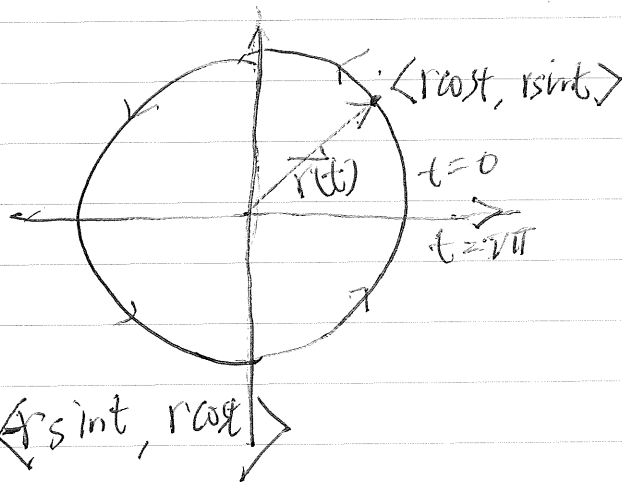 <rcost, rsint>
r(t)
t=0
t=2π
<-rsint, rcost>